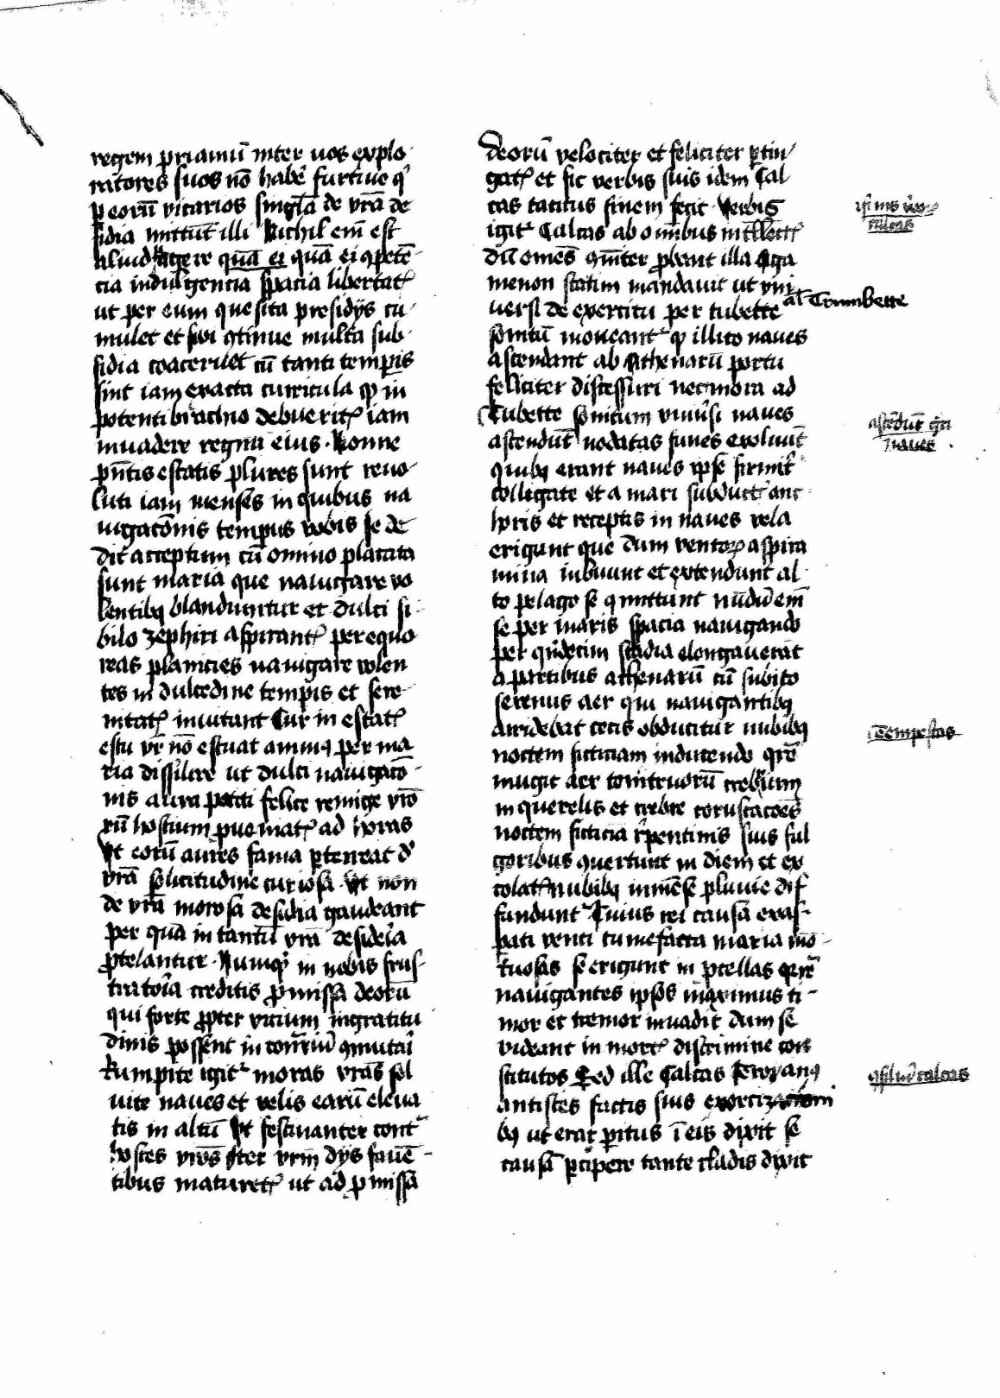 regem priamū inter uos explo-
ratores suos nō haberē furtiue q̄
p eorū vicarios singl̄a de vr̄a de
sidia mittūt illi Nichil em̄ est
aliud agere quā ei quā ei ꝯpetē-
cia indulgencia spacia libertat̄
ut per eum que sita presidijs cu-
mulet et sui ꝯtinue multa sub-
sidia coaceruet cū tanti temporis
sint iam exacta curricula qꝫ in
potenti brachio debuerit̄ iam
inuadere regnū eius · Nonne
pn̄tis estatis plures sunt reuo-
luti iam menses in quibus na
uigacōnis tempus vobis se de
dit acceptum cū omnino placata
sunt maria que nauigare vo
lentibꝫ blandiuntur et dulci si-
bilo zephiri aspirant̄ per equo-
reas planicies nauigare volen
tes in dulcedine tempis et sere-
nitat̄ inuitant Cur in estat̄
estu vr̄ nō estuat animꝰ per ma
ria dissilire ut dulci nauigacō-
nis aura potiti felice remige vr̄o
rū hostium pueniat̄ ad horas
Ut eorū aures fama pterreat d̄
vr̄a solicitudine curiosa Ut non
de vr̄a morosa desidia gaudeant
per quā in tantū vr̄a desideria
ꝓtelantur · Nunqͥ in nobis frus-
tratoria creditis ꝓmissa deorū
qui forte ꝓpter vicium ingratitu
dinis possent in contrariū ꝯmutari
Rumpite igit̄ moras vr̄as sol
uite naues et velis earū eleua
tis in altū Ut festinanter contͣ
hostes vr̄os iter vr̄m dijs fauē-
tibus maturet̄ ut ad ꝓmissa
deorū velociter et feliciter ptin-
gat̄ et sic verbis suis idem Cal
cas tacitus finem fecit Verbis
igit̄ Calcas ab omnibus intellect̄
dū omēs qm̄ter ꝓbant illa Aga
menon statim mandauit ut vni
uersi de exercitu per tubette
al Trumbette
sonitū moueant̄ qꝫ illico naues
ascendant ab Athenarū portu
feliciter discessuri nec mora ad
Tubette sonitum vniūsi naues
ascendūt nodatas funes exoluūt
quibꝫ erant naues ipse firmit̄
colligate et a mari subduct̄ anc
horis et receptis in naues vela
erigunt que dum ventoꝝ aspira
mina imbuunt et extendunt̄ al
to pelago se ꝯmittunt nūdū em̄
se per maris spacia nauigando
per qn̄decim stadia elongauerāt
a partibus athenarū cū subito
serenus aer qui nauigantibꝫ
arridebat cecis obducitur nubibꝫ
noctem ficticiam inducendo qr̄e
mugit aer tonitruorū crebrum
in querelis et crebre coruscacōes
noctem ficticia rͤpentinis suis ful
goribus ꝯuertunt in diem et ex
colat̄ nubibꝫ inmēse pluuie dif
fundunt̄ Cuius rei causā exas-
pati venti tumefacta maria mō-
tuosas se erigunt in ꝓcellas qr̄e
nauigantes ipsos maximus ti-
mor et tremor inuadit dum se
vident in mort̄ discrimine con
stitutos Sed ille Calcas Teroyanꝰ
antistes factis suis exorcizacioni
bꝫ ut erat ꝑitus ī eis dixit se
causā ꝑcipere tante cladis dixit
ascēdūt gͤci
naues
Tempestas
ꝯsiliū calcas